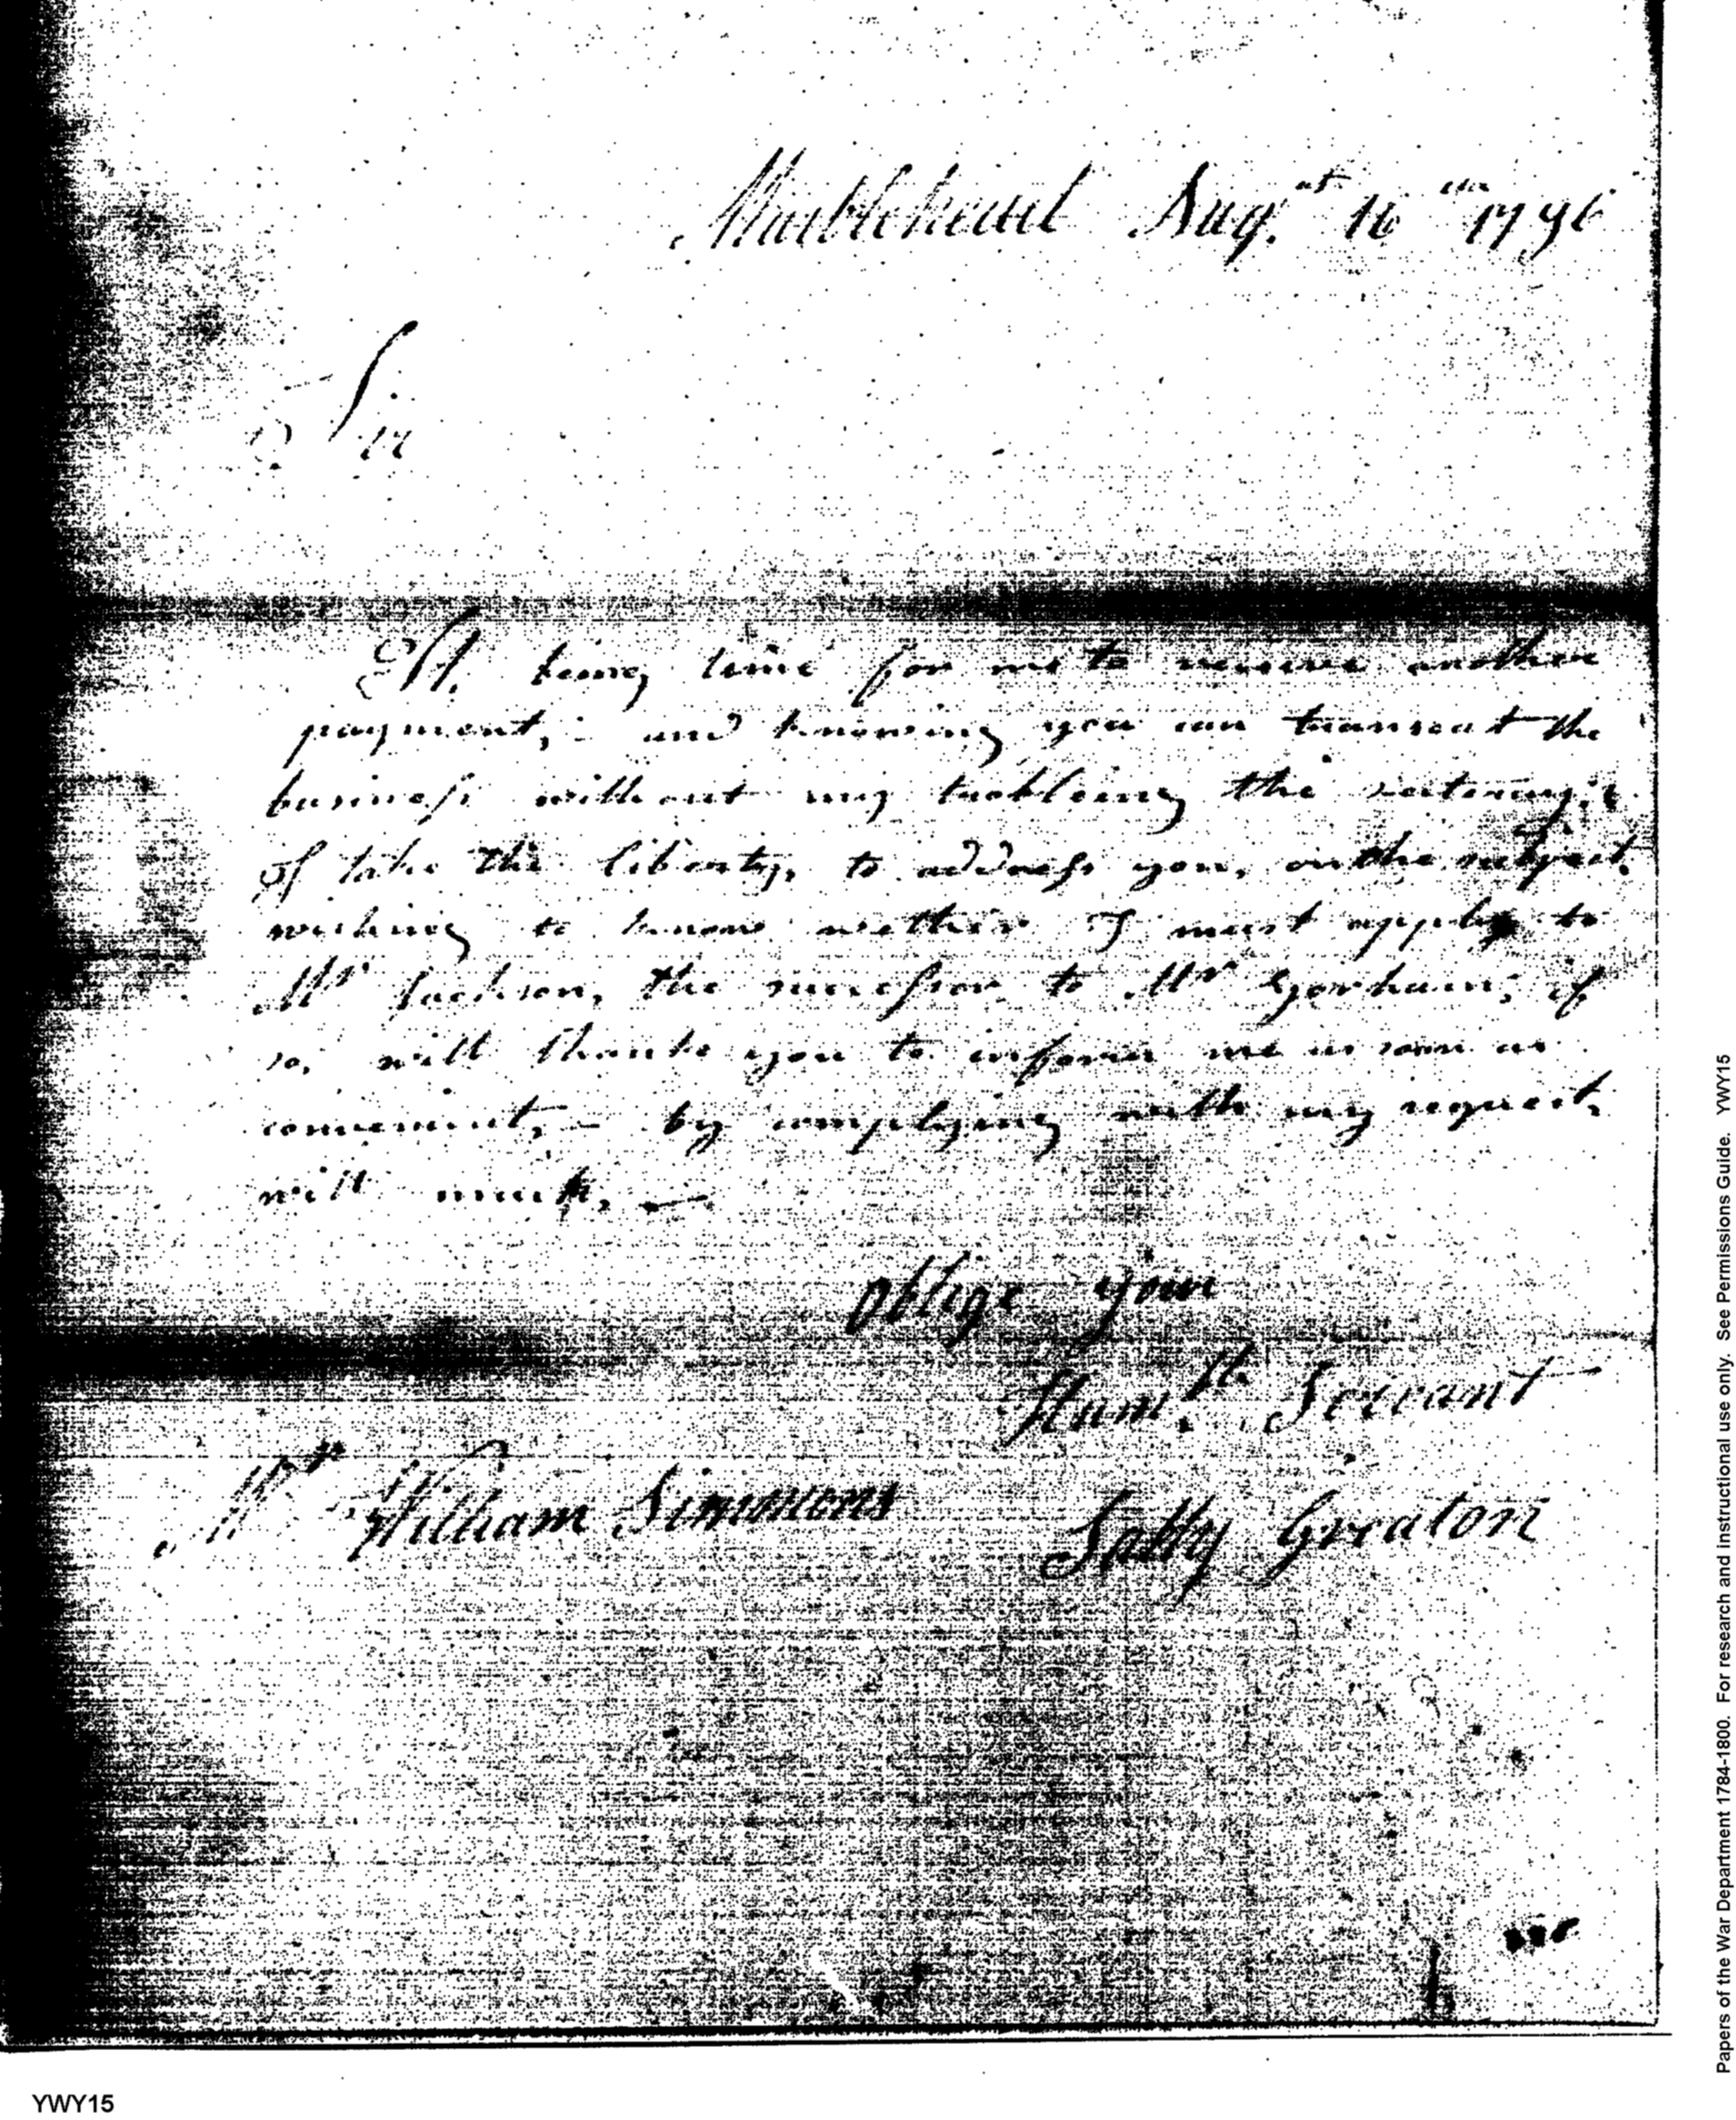 Marblehead Aug.st 16th 1796
Sir
It being time for me to receive another
payment, - and knowing you can transact the
business without my trobleing the
I take the liberty, to address you, on the subject,
wishing to know wether I must apply to
Mr Jackson, the successor to Mr Gorham, if
so, will thank you to inform me as soon as
convenient, - by complying with my request,
will much, -
oblige your
Humble Servant
Mr William Simmons
Sally Greaton
Papers of the War Department 1784-1800. For research and instructional use only. See Permissions Guide. YWY15
YWY15